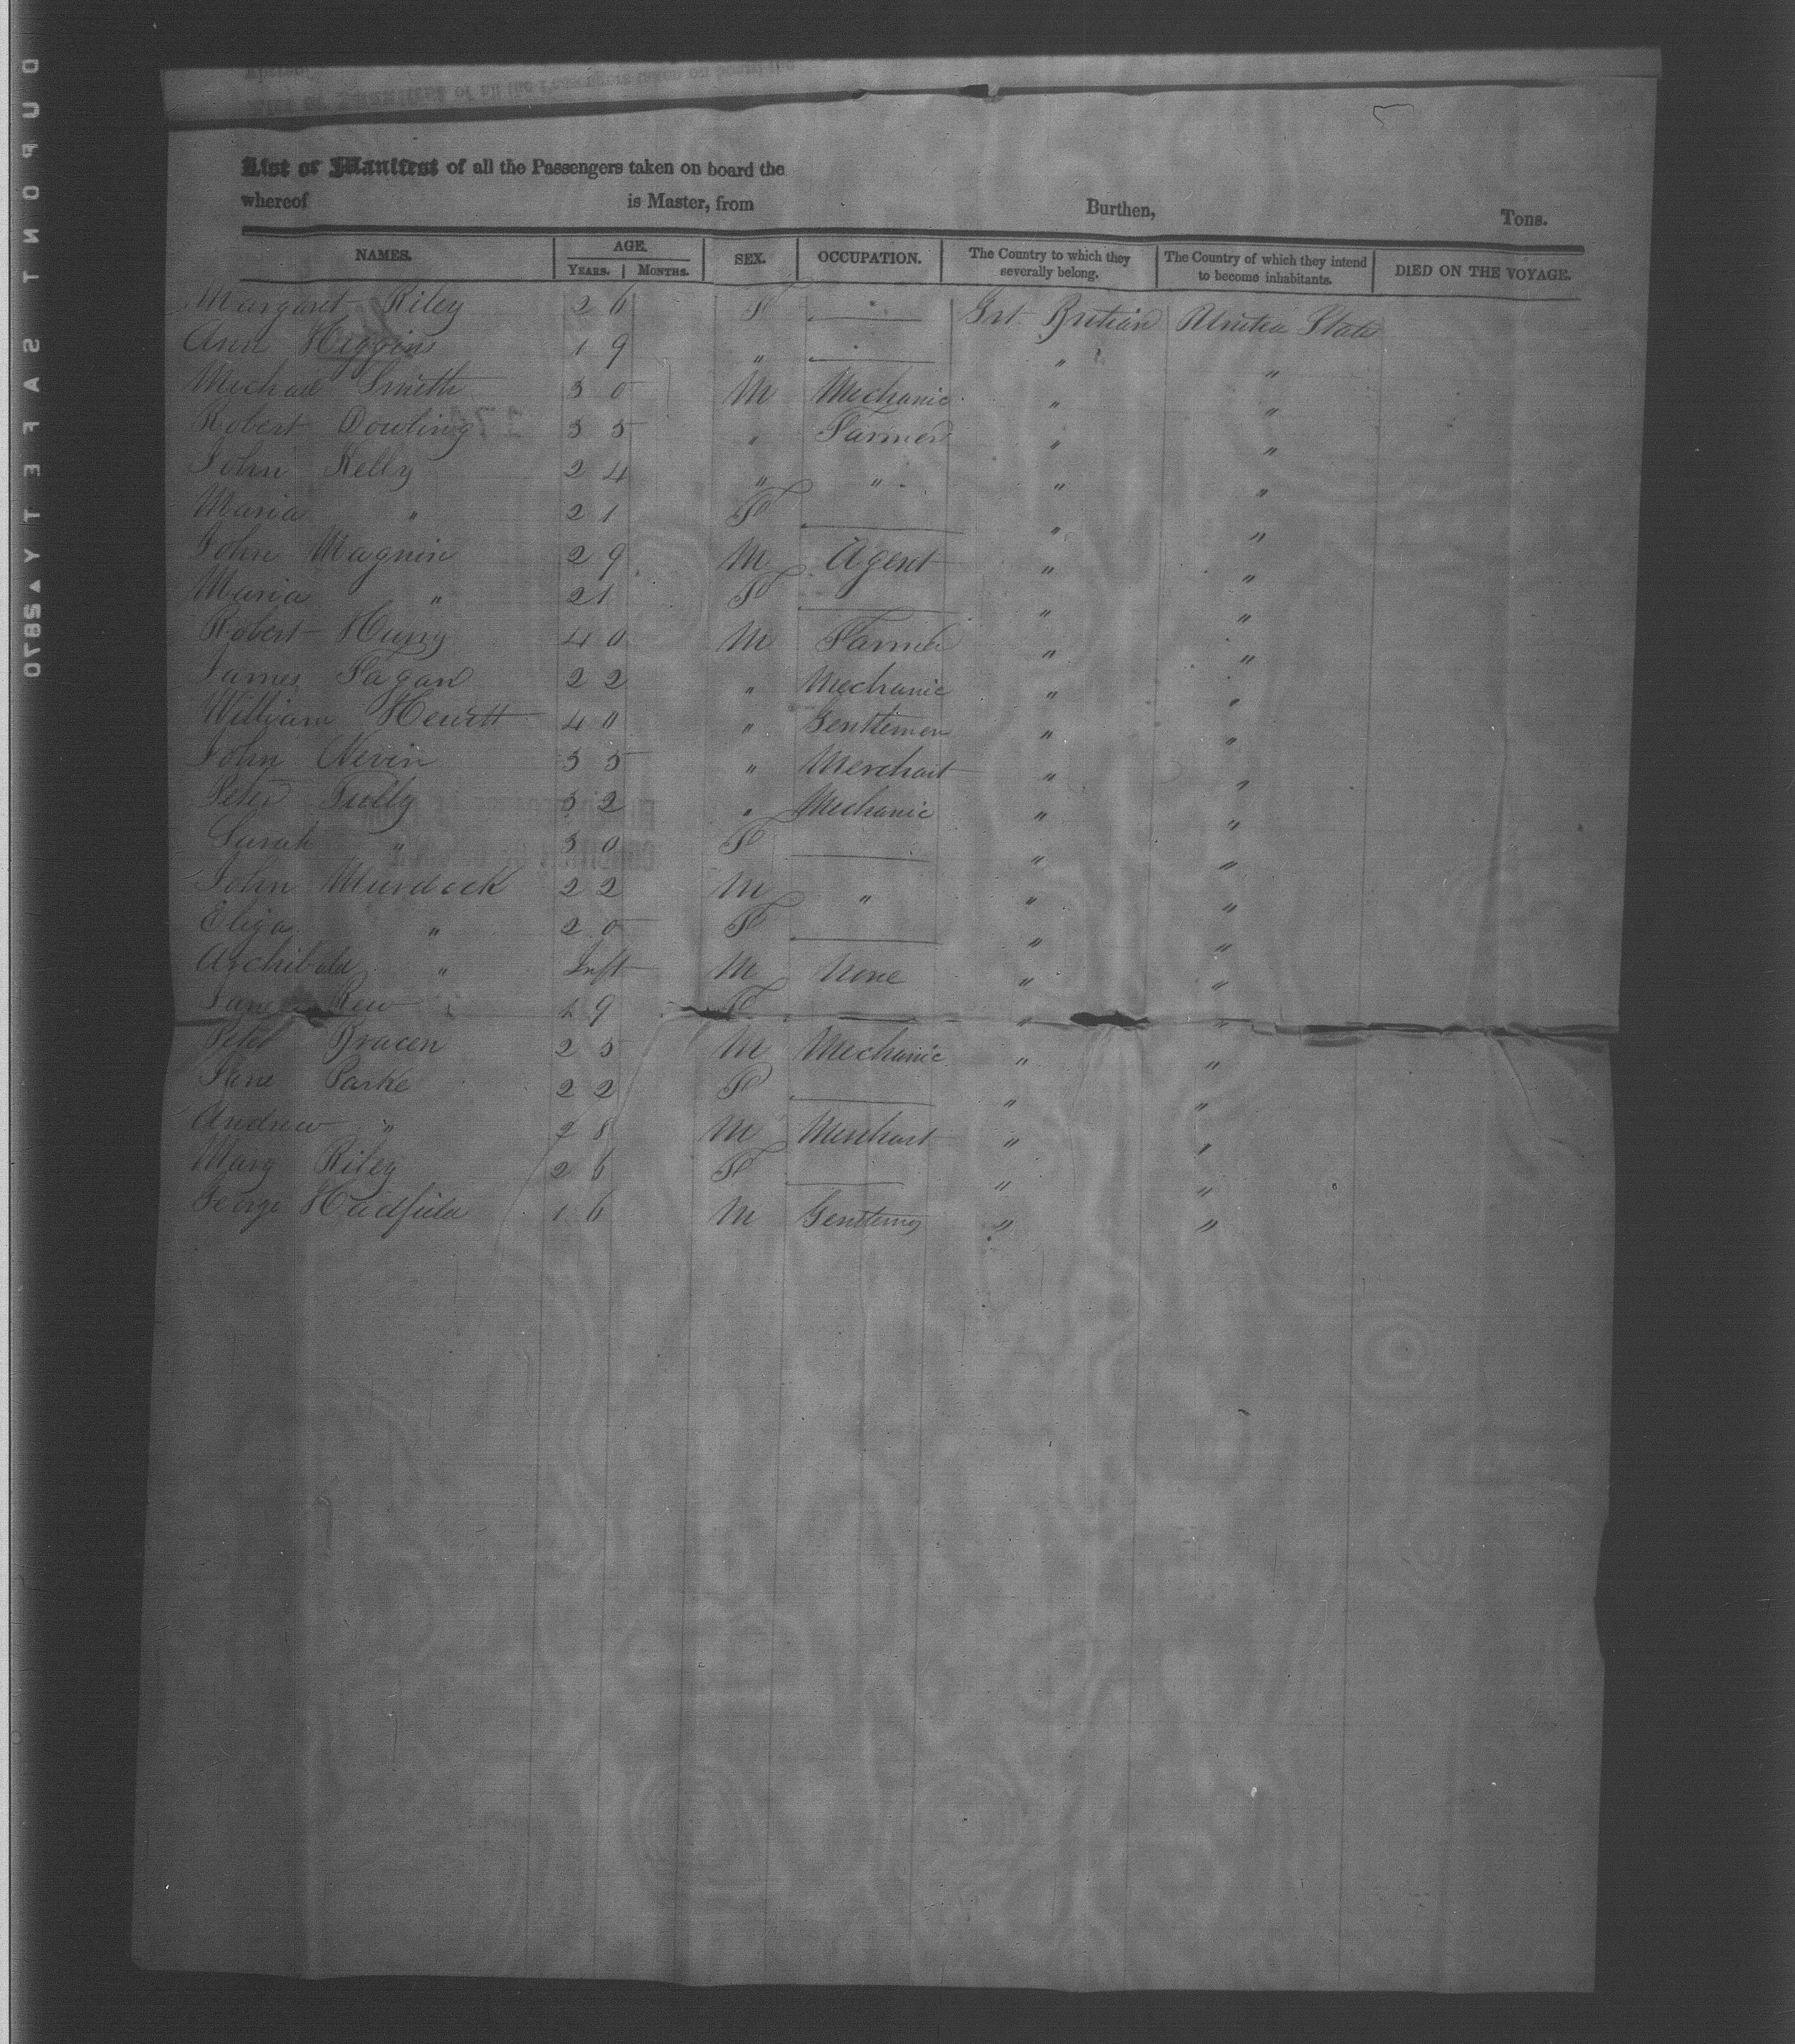 List or Manifest of all the Passengers taken on board the
whereof is Master, from Burthen, Tons.
NAMES. AGE. YEARS. MONTHS. SEX. OCCUPATION. The Country to which they severally belong. The Country of which they intend to become inhabitants. DIED ON THE VOYAGE.
Margaret Riley 26 F — Grt Britian United States
Ann Higgins 19 " — " "
Michael Smith 30 M Mechanic " "
Robert Dowling 35 " Farmer " "
John Kelly 24 " " " "
Maria " 21 F — " "
John Magnin 29 M Agent " "
Maria " 21 F — " "
Robert 40 M Farmer " "
James Fagan 22 " Mechanic " "
William Hewitt 40 " Gentlemen " "
John Nevin 35 " Merchant " "
Peter Tully 32 " Mechanic " "
Sarah " 30 F — " "
John Murdock 22 M " " "
Eliza " 20 F — " "
Archibald " Inft M None " "
Jane 19 F " "
Peter Bracen 25 M Mechanic " "
Jane Parke 22 F — " "
Andrew " 28 M Merchant " "
Mary Riley 26 F — " "
George Hadfield 16 M " "
DUPONT SAFETY 0785